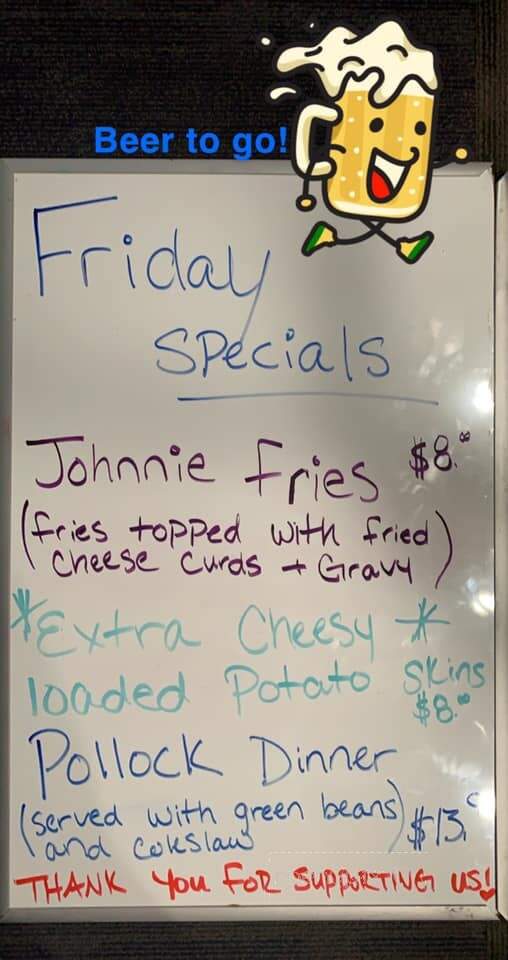 Beer to go!
Friday
Specials
Johnnie Fries $8.00
(fries topped with fried
cheese curds + Gravy)
*Extra Cheesy *
loaded Potato Skins
$8.00
Pollock Dinner
(served with green beans
and coleslaw) $13.
THANK YOU FOR SUPPORTING US!